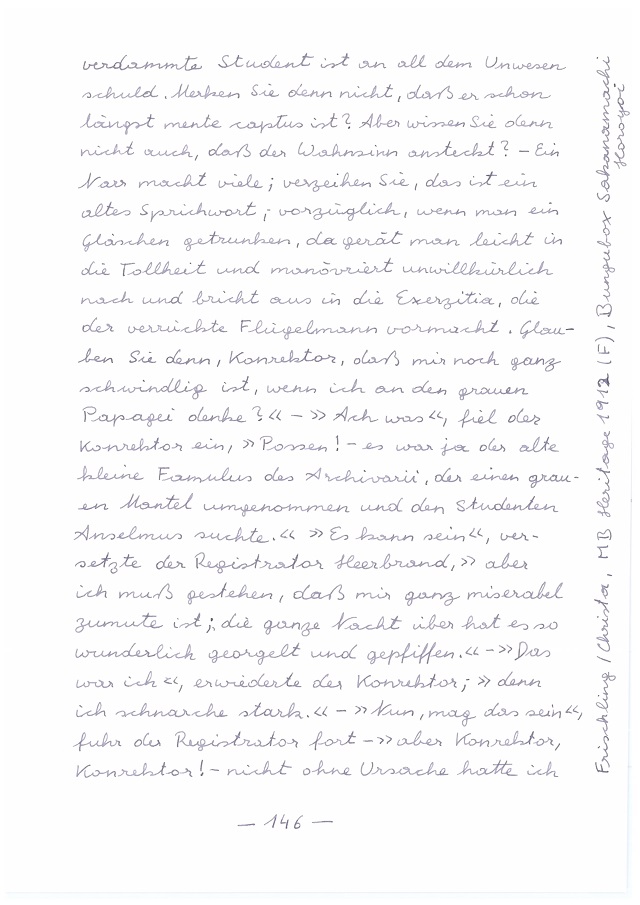 verdammte Student ist an all dem Unwesen
schuld. Merken Sie denn nicht, daß er schon
längst mente captus ist? Aber wissen Sie denn
nicht auch, daß der Wahnsinn ansteckt? – Ein
Narr macht viele; verzeihen Sie, das ist ein
altes Sprichwort; vorzüglich, wenn man ein
Gläschen getrunken, da gerät man leicht in
die Tollheit und manövriert unwillkürlich
nach und bricht aus in die Exerzitia, die
der verrückte Flügelmann vormacht. Glau-
ben Sie denn, Konrektor, daß mir noch ganz
schwindlig ist, wenn ich an den grauen
Papagei denke?« – » Ach was«, fiel der
Konrektor ein, » Possen! – es war ja der alte
kleine Famulus des Archivarii, der einen grau-
en Mantel umgenommen und den Studenten
Anselmus suchte.« » Es kann sein«, ver-
setzte der Registrator Heerbrand, » aber
ich muß gestehen, daß mir ganz miserabel
zumute ist; die ganze Nacht über hat es so
wunderlich georgelt und gepfiffen.« – » Das
war ich«, erwiederte der Konrektor; » denn
ich schnarche stark.« – » Nun, mag das sein«,
fuhr der Registrator fort – » aber Konrektor,
Konrektor! – nicht ohne Ursache hatte ich
— 146 —
Frischling / Christa, MB Heritage 1912 (F), Bungubox Sakanamachi
Horoyoi